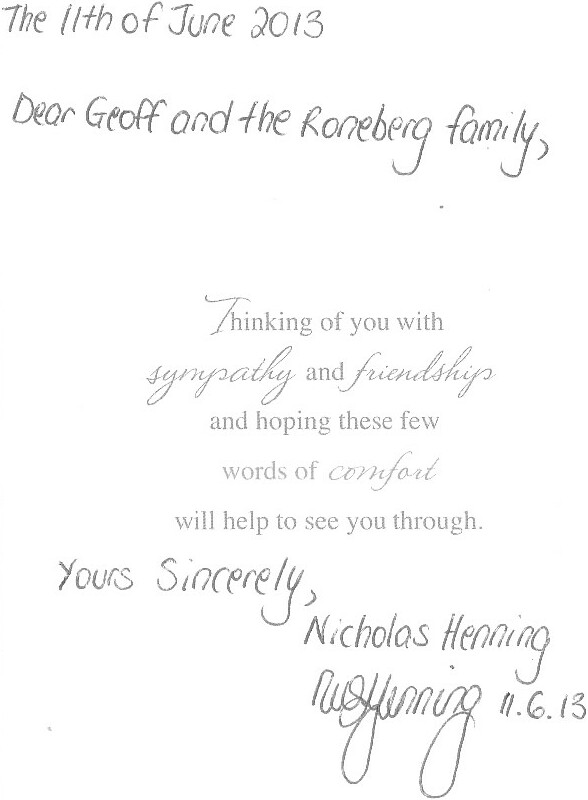 The 11th of June 2013
Dear Geoff and the Roneberg family,
Thinking of you with
sympathy and friendship
and hoping these few
words of comfort
will help to see you through.
Yours Sincerely,
Nicholas Henning
Henning 11.6.13